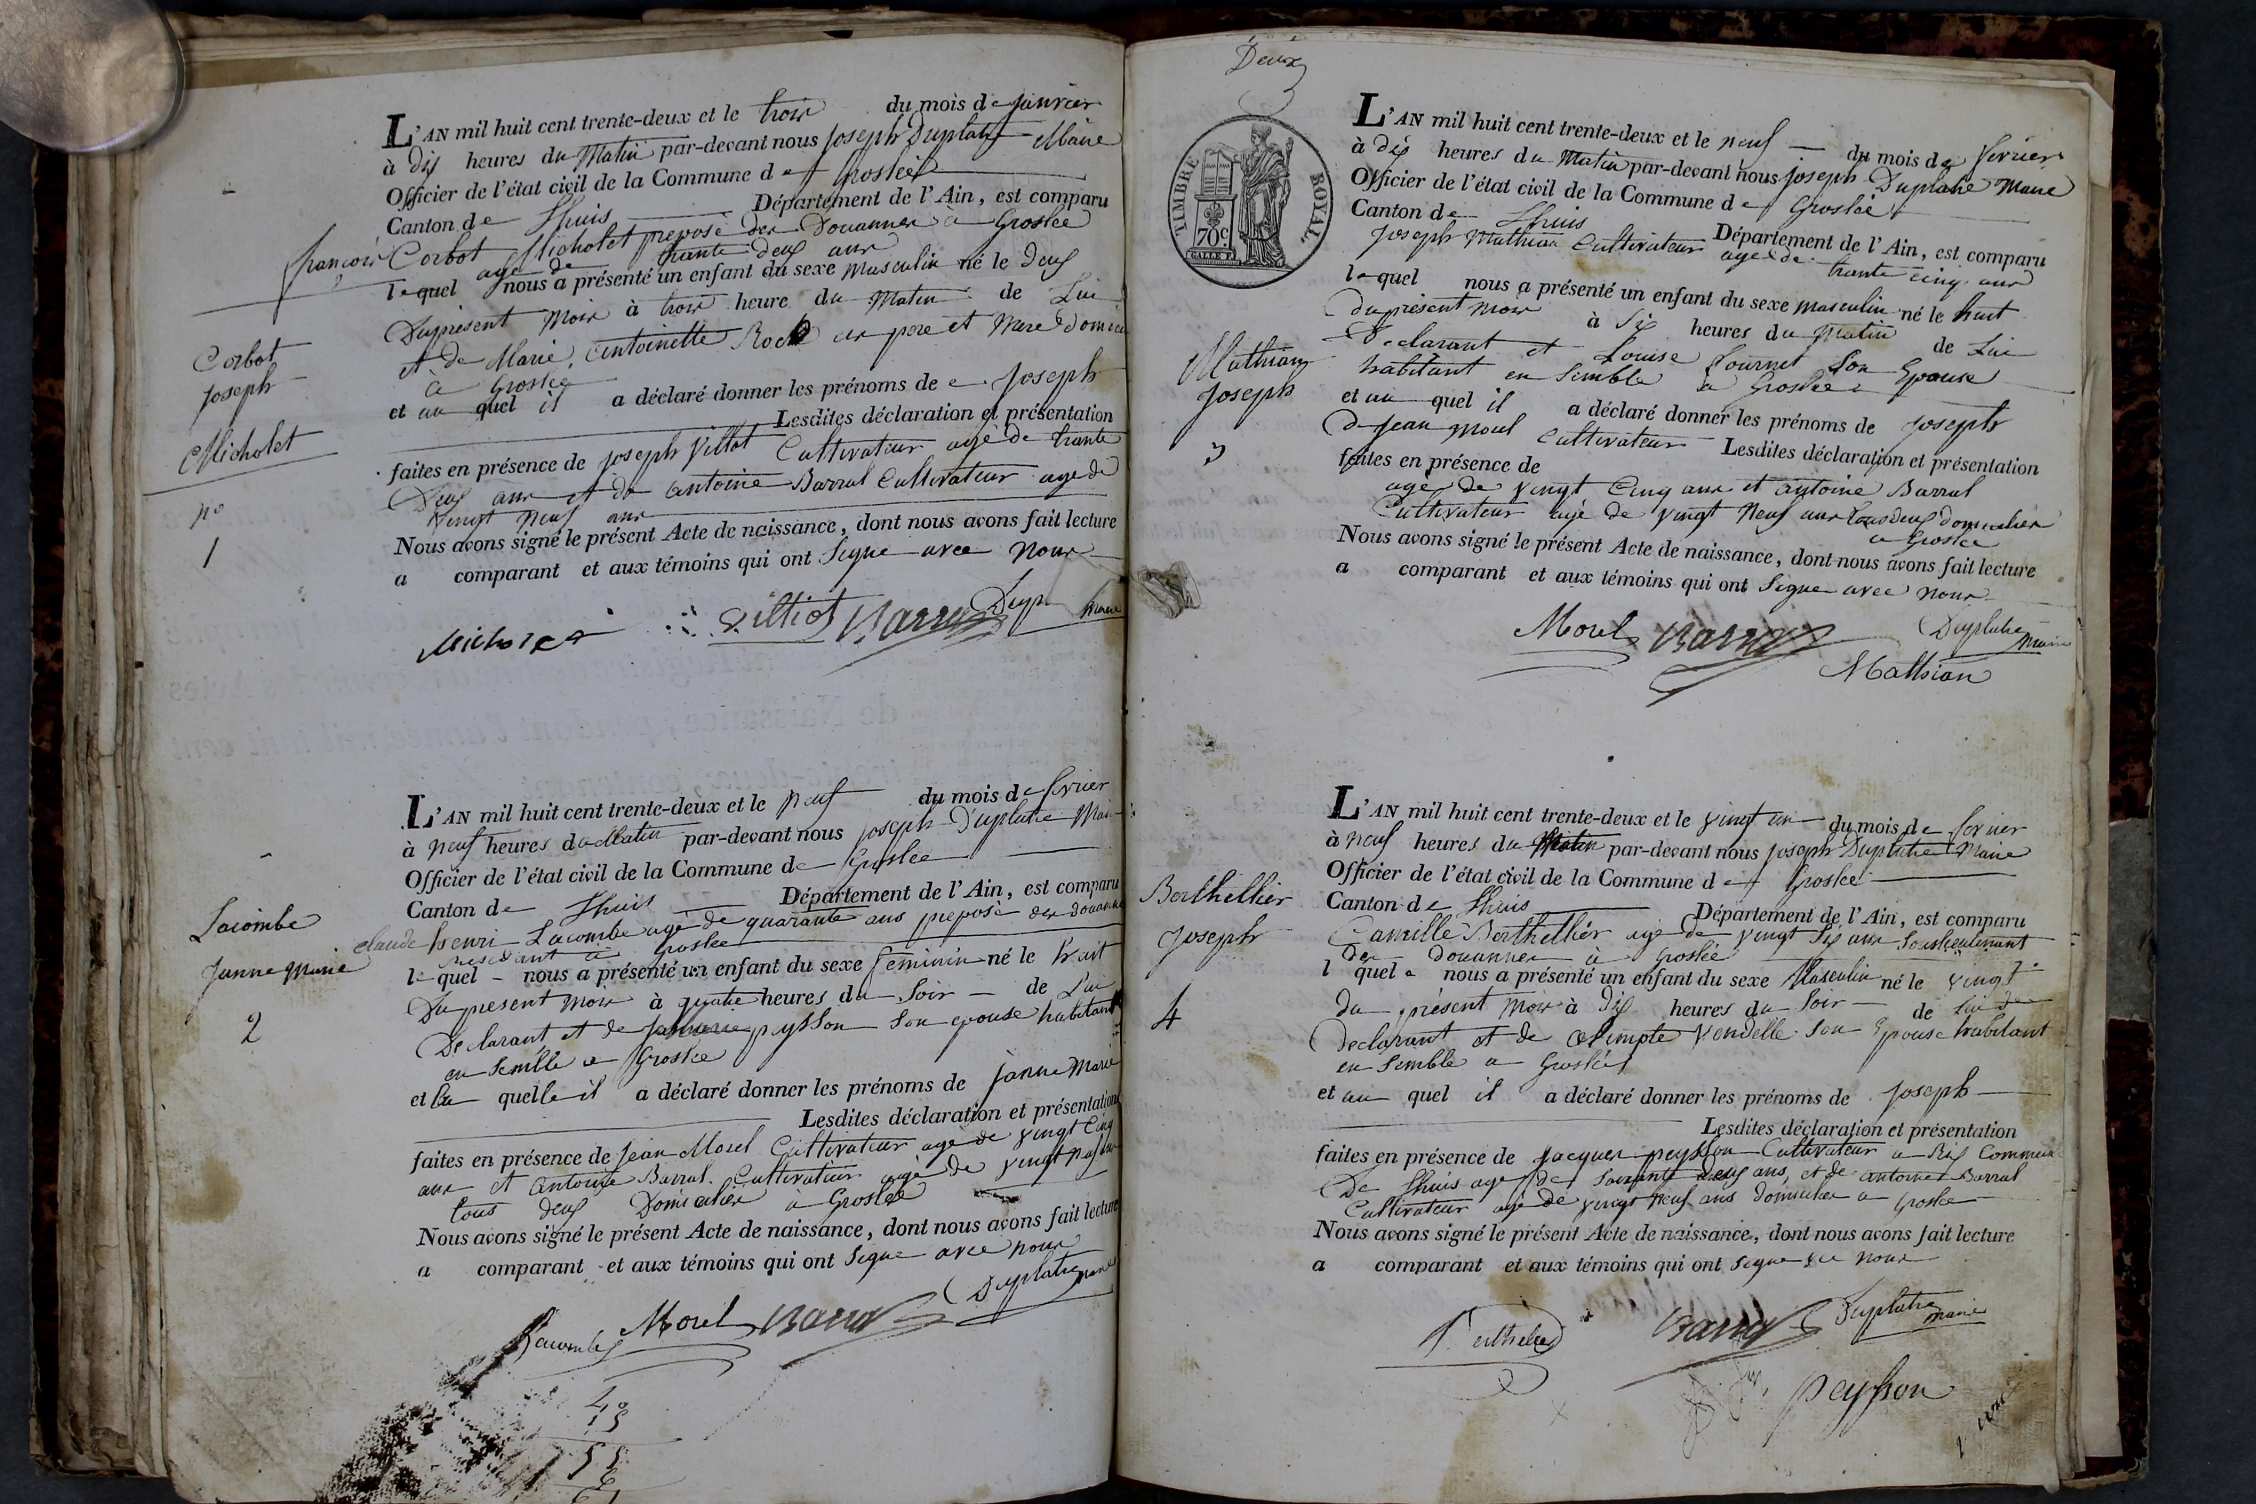 L'AN mil huit cent trente-deux et le trois du mois de janvier
à dix heures du Matin par-devant nous joseph Duplatre Maire
Officier de l'état civil de la Commune de Groslée
Canton de Lhuis Département de l'Ain, est comparu
françois Corbot Micholet preposé des Douannes a Groslee
agé de trante deux ans
lequel nous a présenté un enfant du sexe masculin né le deux
Du présent mois à trois heure du Matin de Lui
et de Marie antoinette Roch ses pere et mere
à Groslée
et au quel il a déclaré donner les prénoms de joseph
Lesdites déclaration et présentation
faites en présence de joseph Villot Cultivateur agé de trante
Deux ans et de antoine Barral Cultivateur age de
vingt neuf ans
Nous avons signé le présent Acte de naissance, dont nous avons fait lecture
a comparant et aux témoins qui ont signe avec nous
Corbot
joseph
Micholet
no
1
Micholet Villiot Barral maire
L'AN mil huit cent trente-deux et le neuf du mois de fevrier
à neuf heures du Matin par-devant nous joseph Duplatre
Officier de l'état civil de la Commune de Groslee
Canton de Lhuis Département de l'Ain, est comparu
claude henri Lacombe agé de quarante ans preposé des douannes
residant à Groslee
lequel nous a présenté un enfant du sexe feminin né le huit
Du present mois à quatre heures du soir de Lui
Declarant et de peysson son epouse habitant
en semble a Groslee
et la quelle il a déclaré donner les prénoms de janne Marie
Lesdites déclaration et présentation
faites en présence de jean Morel Cultivateur agé de vingt cinq
ans et antoine Barral Cultivateur agé de vingt neuf ans
tous deux Domicilies à Groslee
Nous avons signé le présent Acte de naissance, dont nous avons fait lecture
a comparant et aux témoins qui ont signe avec nous
Lacombe
janne Marie
2
Lacombe Morel Barral Duplatre maire
Deux
TIMBRE ROYAL
70c
L'AN mil huit cent trente-deux et le neuf du mois de fevrier
à dix heures du Matin par-devant nous joseph Duplatre Maire
Officier de l'état civil de la Commune de Groslée
Canton de Lhuis Département de l'Ain, est comparu
joseph Mathian Cultivateur agé de trante cinq ans
lequel nous a présenté un enfant du sexe masculin né le huit
du présent mois à Six heures du Matin de Lui
Declarant et Louise Tournel Son Epouse
habitant en semble a Groslée
et au quel il a déclaré donner les prénoms de joseph
Lesdites déclaration et présentation
faites en présence de jean Morel Cultivateur
agé de vingt cinq ans et antoine Barral
Cultivateur agé de vingt neuf ans tous deux domicilies
a Groslee
Nous avons signé le présent Acte de naissance, dont nous avons fait lecture
a comparant et aux témoins qui ont signe avec nous
Mathian
joseph
3
Morel Barral Duplatre maire
Mathian
L'AN mil huit cent trente-deux et le vingt un du mois de fevrier
à neuf heures du Matin par-devant nous joseph Duplatre Maire
Officier de l'état civil de la Commune de Groslée
Canton de Lhuis Département de l'Ain, est comparu
Camille Berthellier agé de vingt six ans Souslieutenant
Des Douannes à Groslée
lequel nous a présenté un enfant du sexe Masculin né le vingt
du présent mois à dix heures du soir de Lui
Declarant et de Vendelle son Epouse habitant
en semble a Groslée
et au quel il a déclaré donner les prénoms de joseph
Lesdites déclaration et présentation
faites en présence de jacques peysson Cultivateur a Rix Commune
De Lhuis agé de soixante deux ans, et de antoine Barral
Cultivateur agé de vingt neuf ans domicilies a Groslee
Nous avons signé le présent Acte de naissance, dont nous avons fait lecture
a comparant et aux témoins qui ont signe avec nous
Berthellier
joseph
4
Barral Duplatre maire
peysson